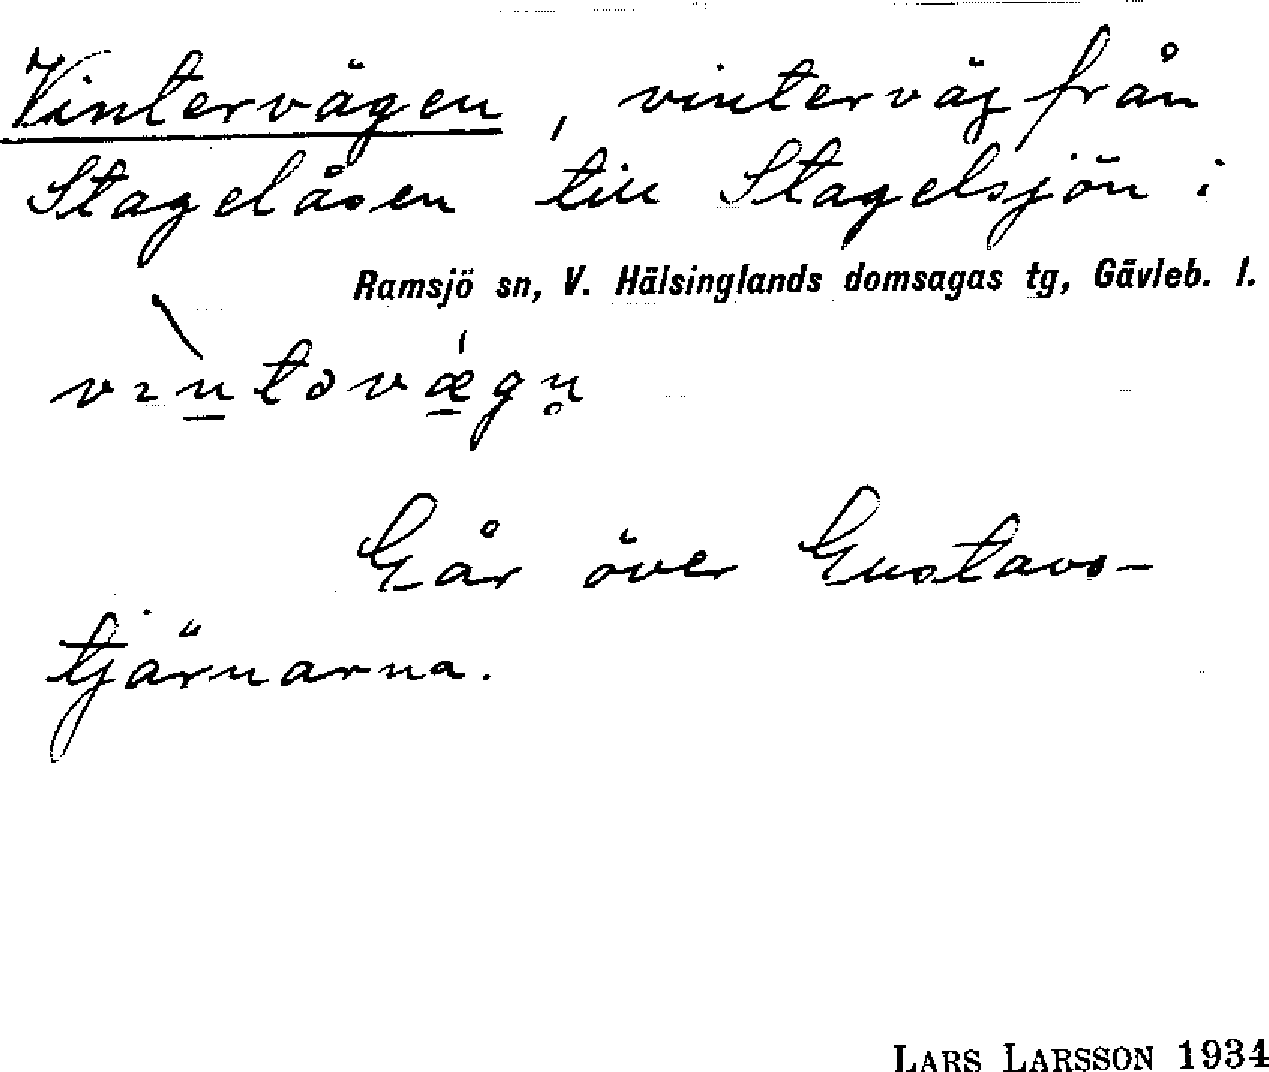 Vintervägen, vinterväg från
Stagelåsen till Stagelsjön i
Ramsjö sn, V. Hälsinglands domsagas tg, Gävleb. l.
vìn̠təvǽ̠gn̥
Går över Gustavs-
tjärnarna.
LARS LARSSON 1934